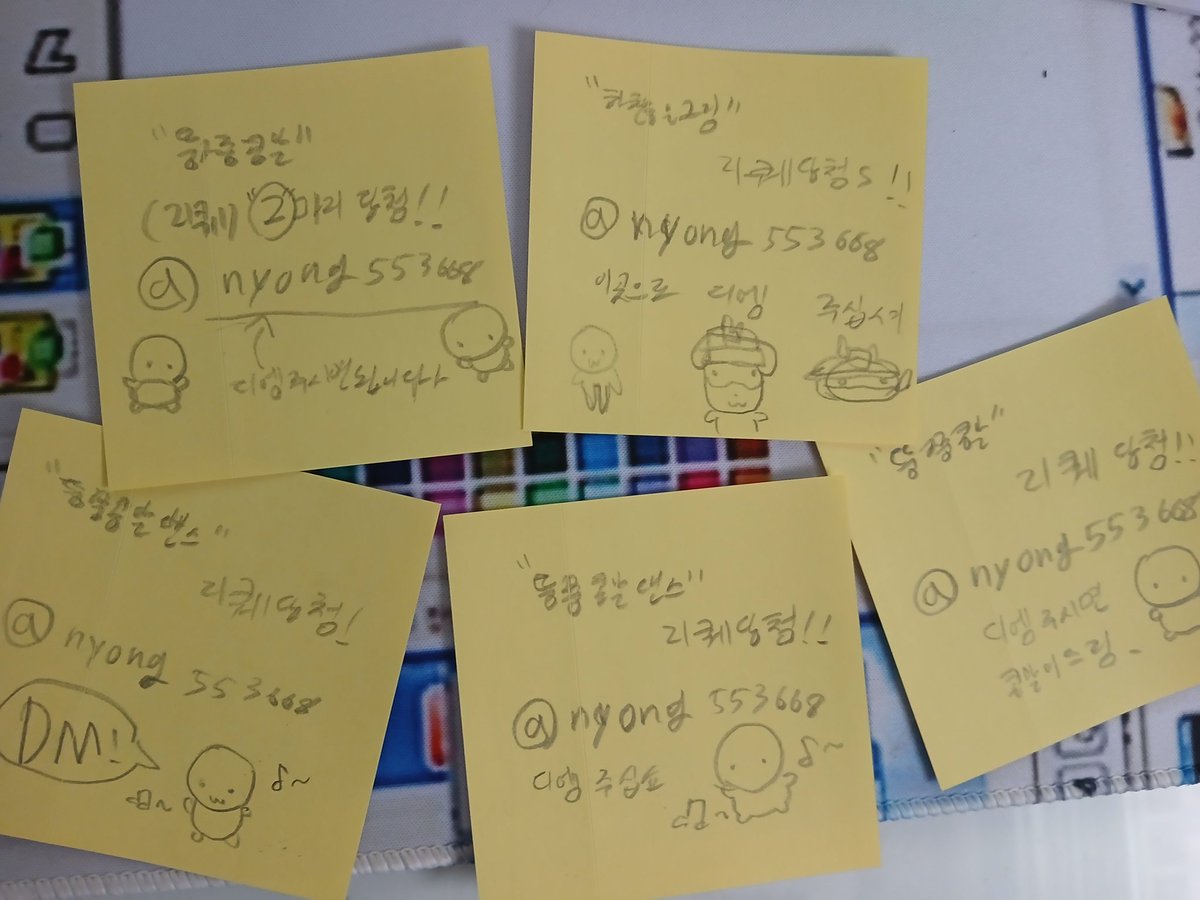 (리퀘) "2"마리 당첨!!
@ nyong553668
디엠주시면됩니다아
리퀘당첨 !!
@ nyong 553668
이곳으로 디엠 주십셔
댄스"
리퀘당첨!
@ nyong 553668
DM!
댄스"
리퀘당첨!!
@ nyong 553668
디엠 주십쇼
리퀘 당첨!!
@ nyong 553668
디엠 주시면